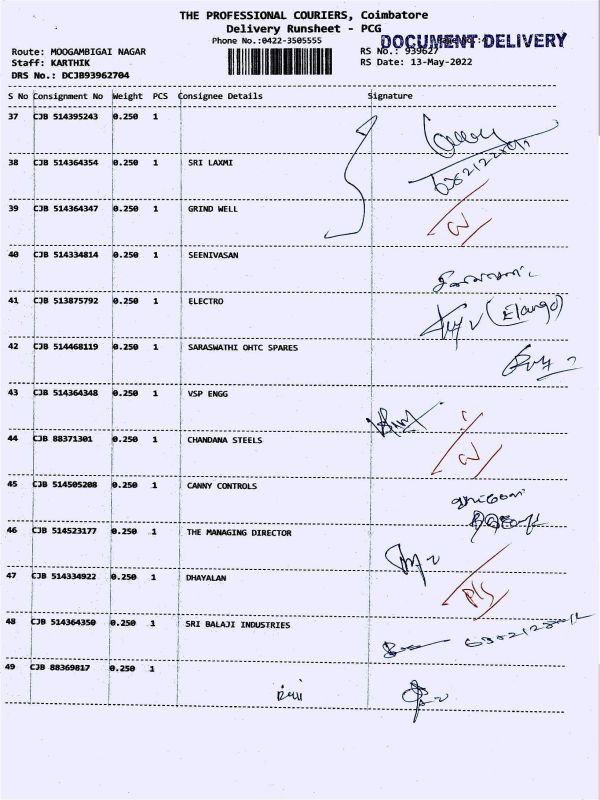 THE PROFESSIONAL COURIERS, Coimbatore
Delivery Runsheet - PCG
Phone No.:0422-3505555
DOCUMENT DELIVERY
Route: MOOGAMBIGAI NAGAR
RS No.: 939627
Staff: KARTHIK
RS Date: 13-May-2022
DRS No.: DCJB93962704
S No Consignment No Weight PCS Consignee Details Signature
37 CJB 514395243 0.250 1
38 CJB 514364354 0.250 1 SRI LAXMI
39 CJB 514364347 0.250 1 GRIND WELL
40 CJB 514334814 0.250 1 SEENIVASAN
41 CJB 513875792 0.250 1 ELECTRO
(Elango)
42 CJB 514468119 0.250 1 SARASWATHI OHTC SPARES
43 CJB 514364348 0.250 1 VSP ENGG
44 CJB 88371301 0.250 1 CHANDANA STEELS
45 CJB 514505208 0.250 1 CANNY CONTROLS
46 CJB 514523177 0.250 1 THE MANAGING DIRECTOR
47 CJB 514334922 0.250 1 DHAYALAN
48 CJB 514364350 0.250 1 SRI BALAJI INDUSTRIES
49 CJB 88369817 0.250 1